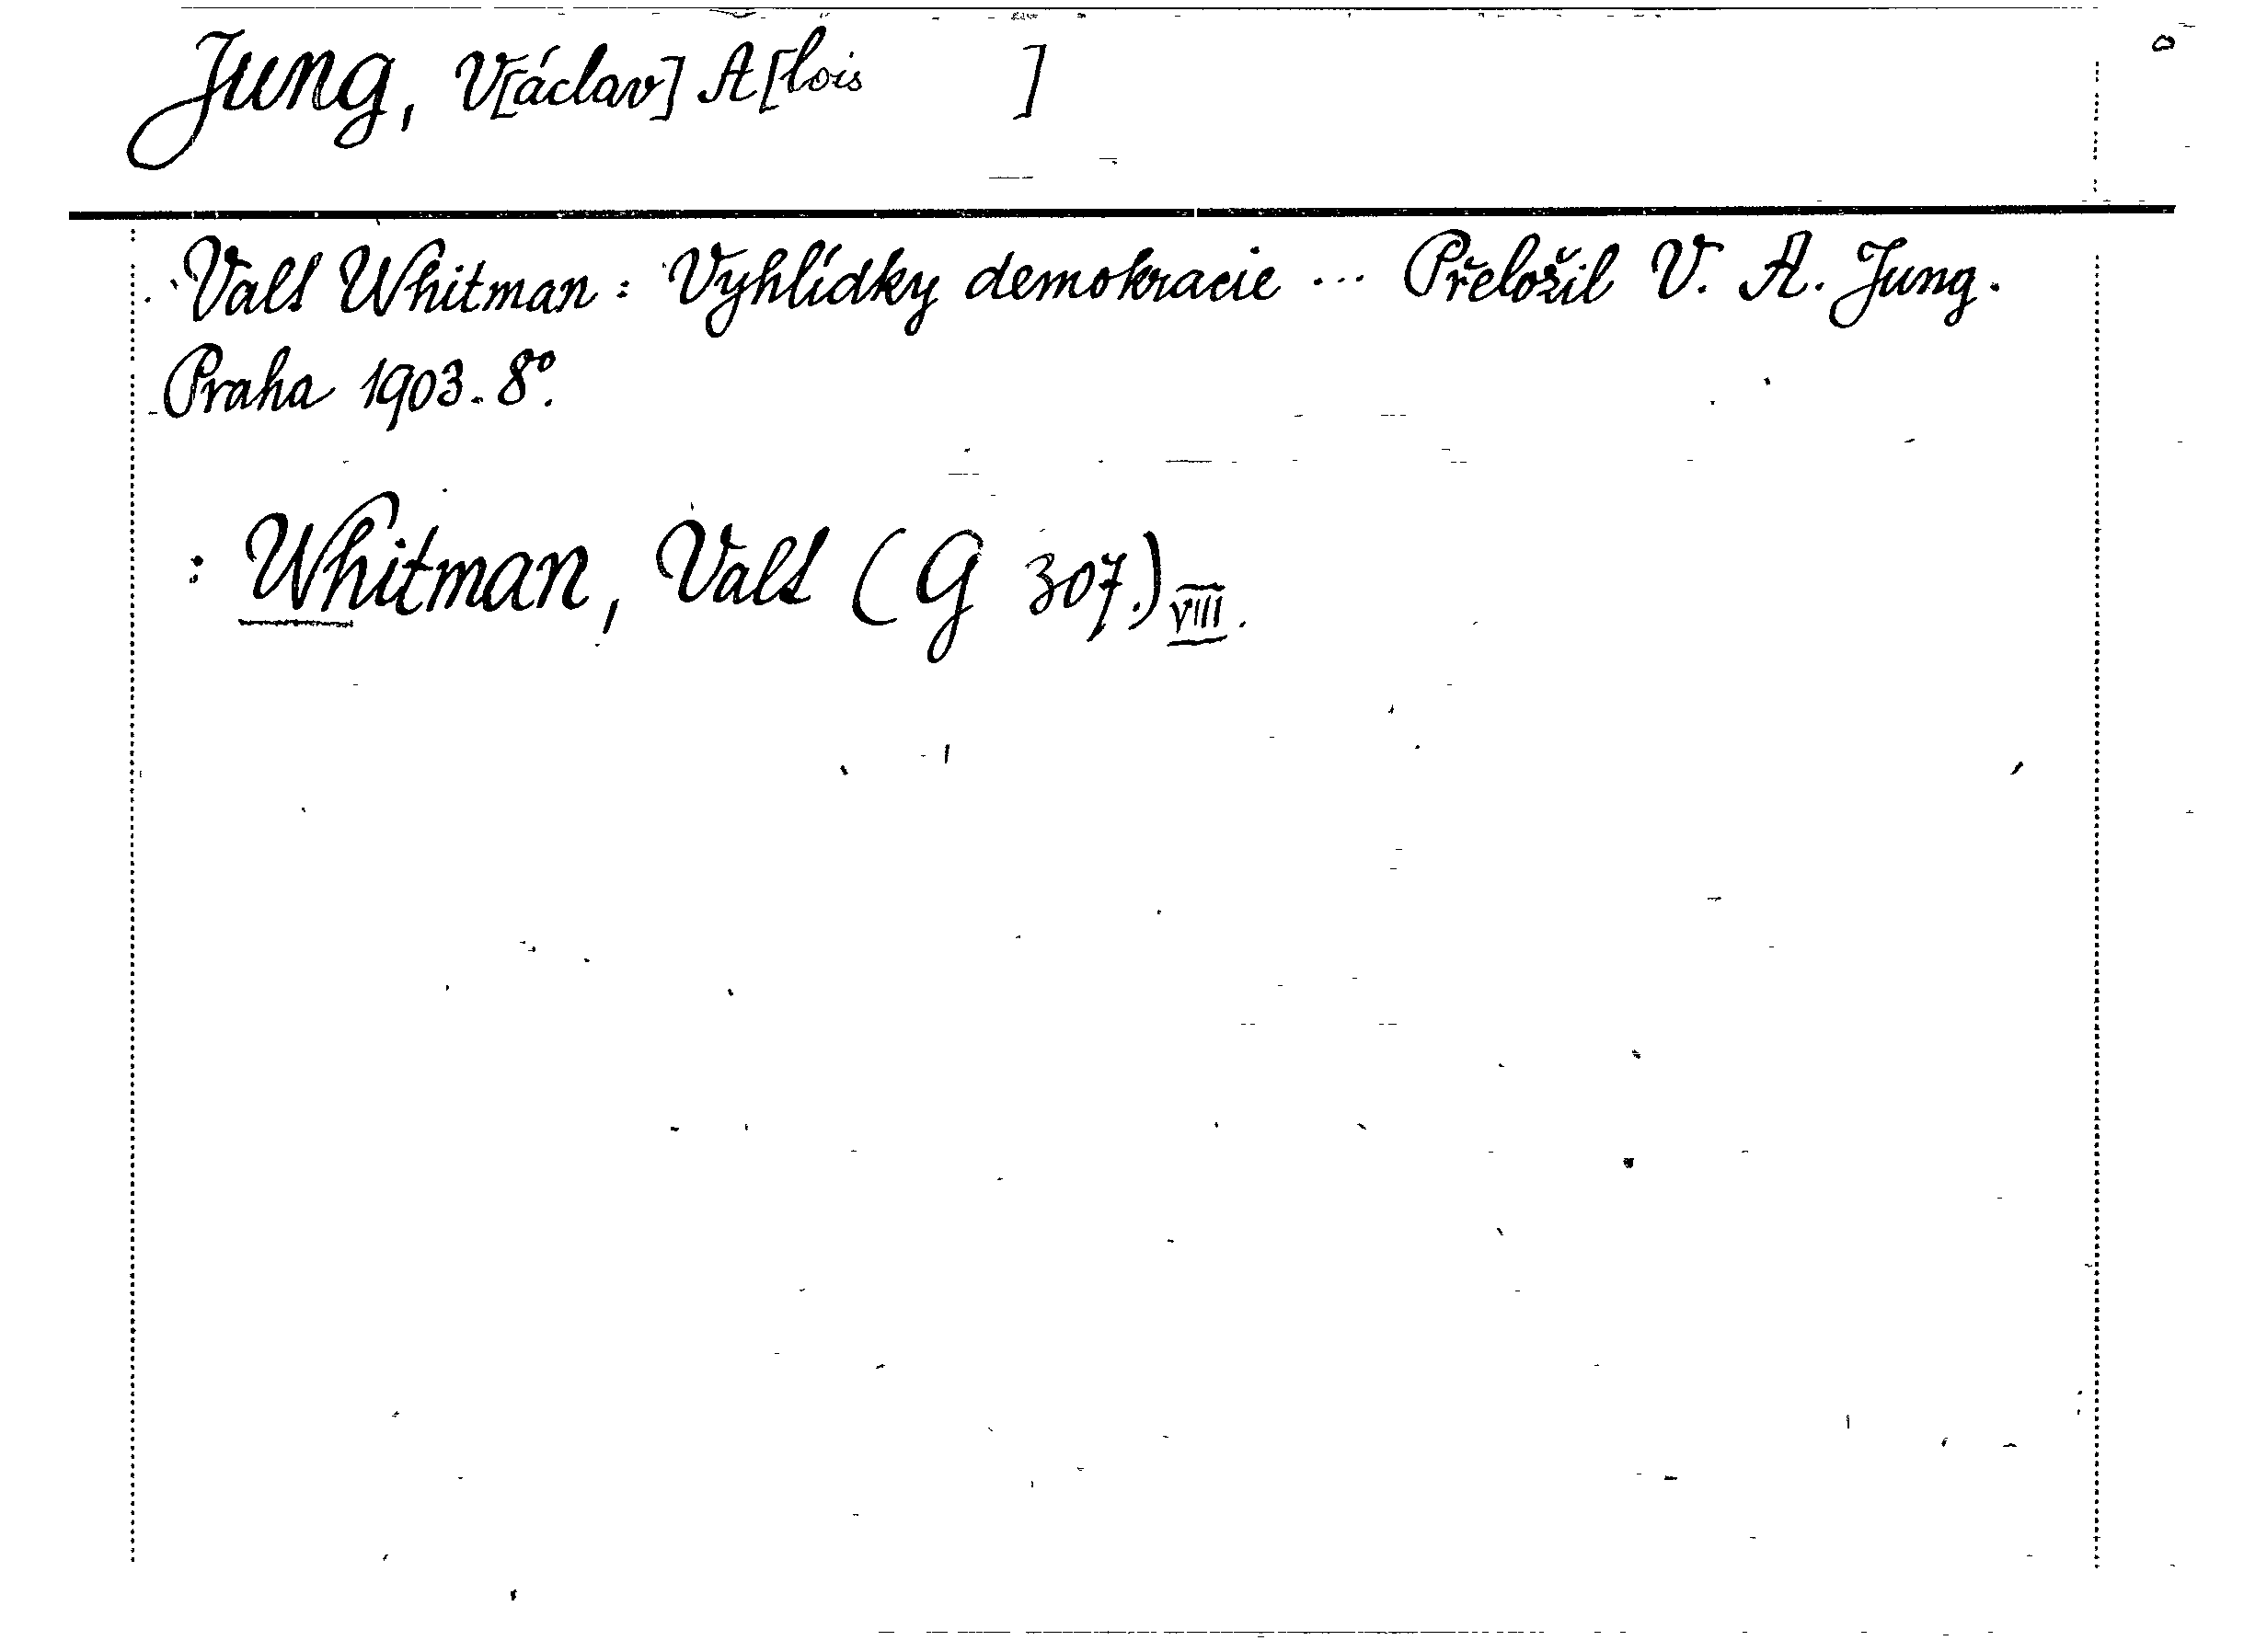 Jung, V[áclav] A[lois ]
Valt Whitman: Vyhlídky demokracie ... Přeložil V. A. Jung.
Praha 1903. 8º.
: Whitman, Valt (G 307.) VIII.